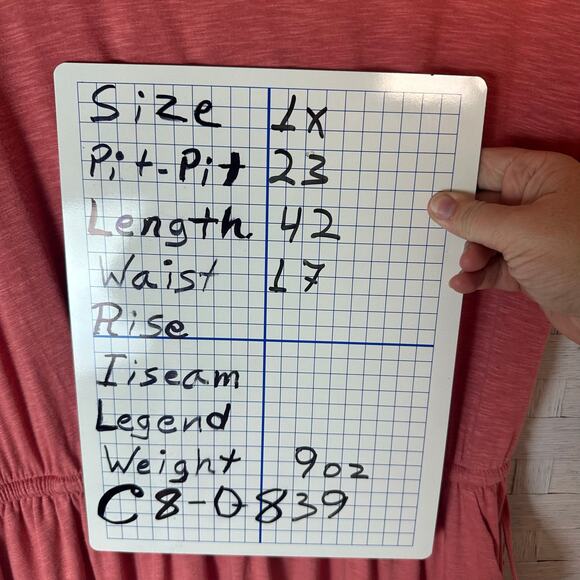 Size 1X
Pit-Pit 23
Length 42
Waist 17
Rise
Iiseam
Legend
Weight 9oz
C8-0839